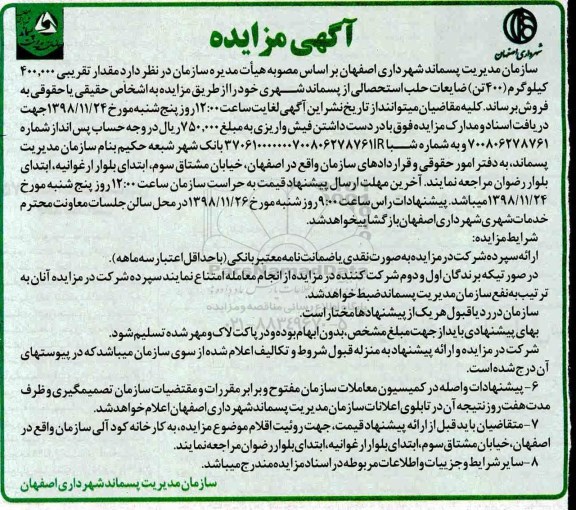 آگهی مزایده
شهرداری اصفهان
سازمان مدیریت پسماند شهرداری اصفهان بر اساس مصوبه هیأت مدیره سازمان در نظر دارد مقدار تقریبی ۴۰۰,۰۰۰
کیلوگرم (۴۰۰ تن) ضایعات حلب استحصالی از پسماند شهری خود را از طریق مزایده به اشخاص حقیقی یا حقوقی به
فروش برساند. کلیه متقاضیان میتوانند از تاریخ نشر این آگهی لغایت ساعت ۱۲:۰۰ روز پنج شنبه مورخ ۱۳۹۸/۱۱/۲۴ جهت
دریافت اسناد و مدارک مزایده فوق با در دست داشتن فیش واریزی به مبلغ ۷۵۰,۰۰۰ ریال در وجه حساب پس انداز شماره
۷۰۰۸۰۶۲۷۸۷۶۱ و به شماره شبا IR۳۷۰۶۱۰۰۰۰۰۰۷۰۰۸۰۶۲۷۸۷۶۱ بانک شهر شعبه حکیم بنام سازمان مدیریت
پسماند، به دفتر امور حقوقی و قراردادهای سازمان واقع در اصفهان، خیابان مشتاق سوم، ابتدای بلوار ارغوانیه، ابتدای
بلوار رضوان مراجعه نمایند. آخرین مهلت ارسال پیشنهاد قیمت به حراست سازمان ساعت ۱۲:۰۰ روز پنج شنبه مورخ
۱۳۹۸/۱۱/۲۴ میباشد. پیشنهادات راس ساعت ۹:۰۰ روز شنبه مورخ ۱۳۹۸/۱۱/۲۶ در محل سالن جلسات معاونت محترم
خدمات شهری شهرداری اصفهان بازگشایی خواهد شد.
شرایط مزایده:
ارائه سپرده شرکت در مزایده به صورت نقدی یا ضمانت نامه معتبر بانکی (با حداقل اعتبار سه ماهه).
در صورتیکه برندگان اول و دوم شرکت کننده در مزایده از انجام معامله امتناع نمایند سپرده شرکت در مزایده آنان به
ترتیب به نفع سازمان مدیریت پسماند ضبط خواهد شد.
سازمان در رد یا قبول هر یک از پیشنهادها مختار است.
بهای پیشنهادی باید از جهت مبلغ مشخص، بدون ابهام بوده و در پاکت لاک و مهر شده تسلیم شود.
شرکت در مزایده و ارائه پیشنهاد به منزله قبول شروط و تکالیف اعلام شده از سوی سازمان میباشد که در پیوستهای
آن درج شده است.
۶- پیشنهادات واصله در کمیسیون معاملات سازمان مفتوح و برابر مقررات و مقتضیات سازمان تصمیمگیری و ظرف
مدت هفت روز نتیجه آن در تابلوی اعلانات سازمان مدیریت پسماند شهرداری اصفهان اعلام خواهد شد.
۷- متقاضیان باید قبل از ارائه پیشنهاد قیمت، جهت روئیت اقلام موضوع مزایده، به کارخانه کود آلی سازمان واقع در
اصفهان، خیابان مشتاق سوم، ابتدای بلوار ارغوانیه، ابتدای بلوار رضوان مراجعه نمایند.
۸- سایر شرایط و جزییات و اطلاعات مربوطه در اسناد مزایده مندرج میباشد.
سازمان مدیریت پسماند شهرداری اصفهان